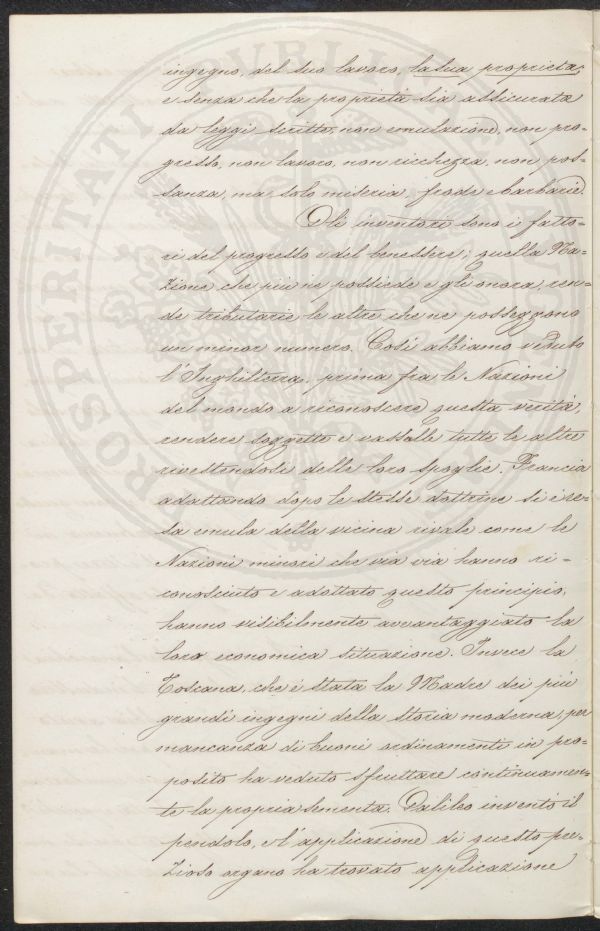 ingegno, del suo lavoro, la sua proprietà,
e senza che la proprietà sia assicurata
da leggi scritte, non emulazione, non pro-
gresso, non lavoro, non ricchezza, non pos-
sanza, ma solo miseria, frode e barbarie.
Gli inventori sono i fatto-
ri del progresso e del benessere; quella Na-
zione che più ne possiede e gli onora, ren-
de tributarie le altre che ne posseggono
un minor numero. Così abbiamo veduto
l'Inghilterra, prima fra le Nazioni
del mondo a riconoscere questa verità,
rendere soggette e vassalle tutte le altre
rivestendosi delle loro spoglie. Francia
adottando dopo le stesse dottrine si è re-
sa emula della vicina rivale come le
Nazioni minori che via via hanno ri-
conosciuto e adottato questo principio,
hanno visibilmente avvantaggiato la
loro economica situazione. Invece la
Toscana, che è stata la Madre dei più
grandi ingegni della storia moderna, per
mancanza di buoni ordinamenti in pro-
posito ha veduto sfruttare continuamen-
te la propria sementa. Galileo inventò il
pendolo, e l'applicazione di questo pre-
zioso organo ha trovato applicazione
PROSPERITATI PUBLICAE